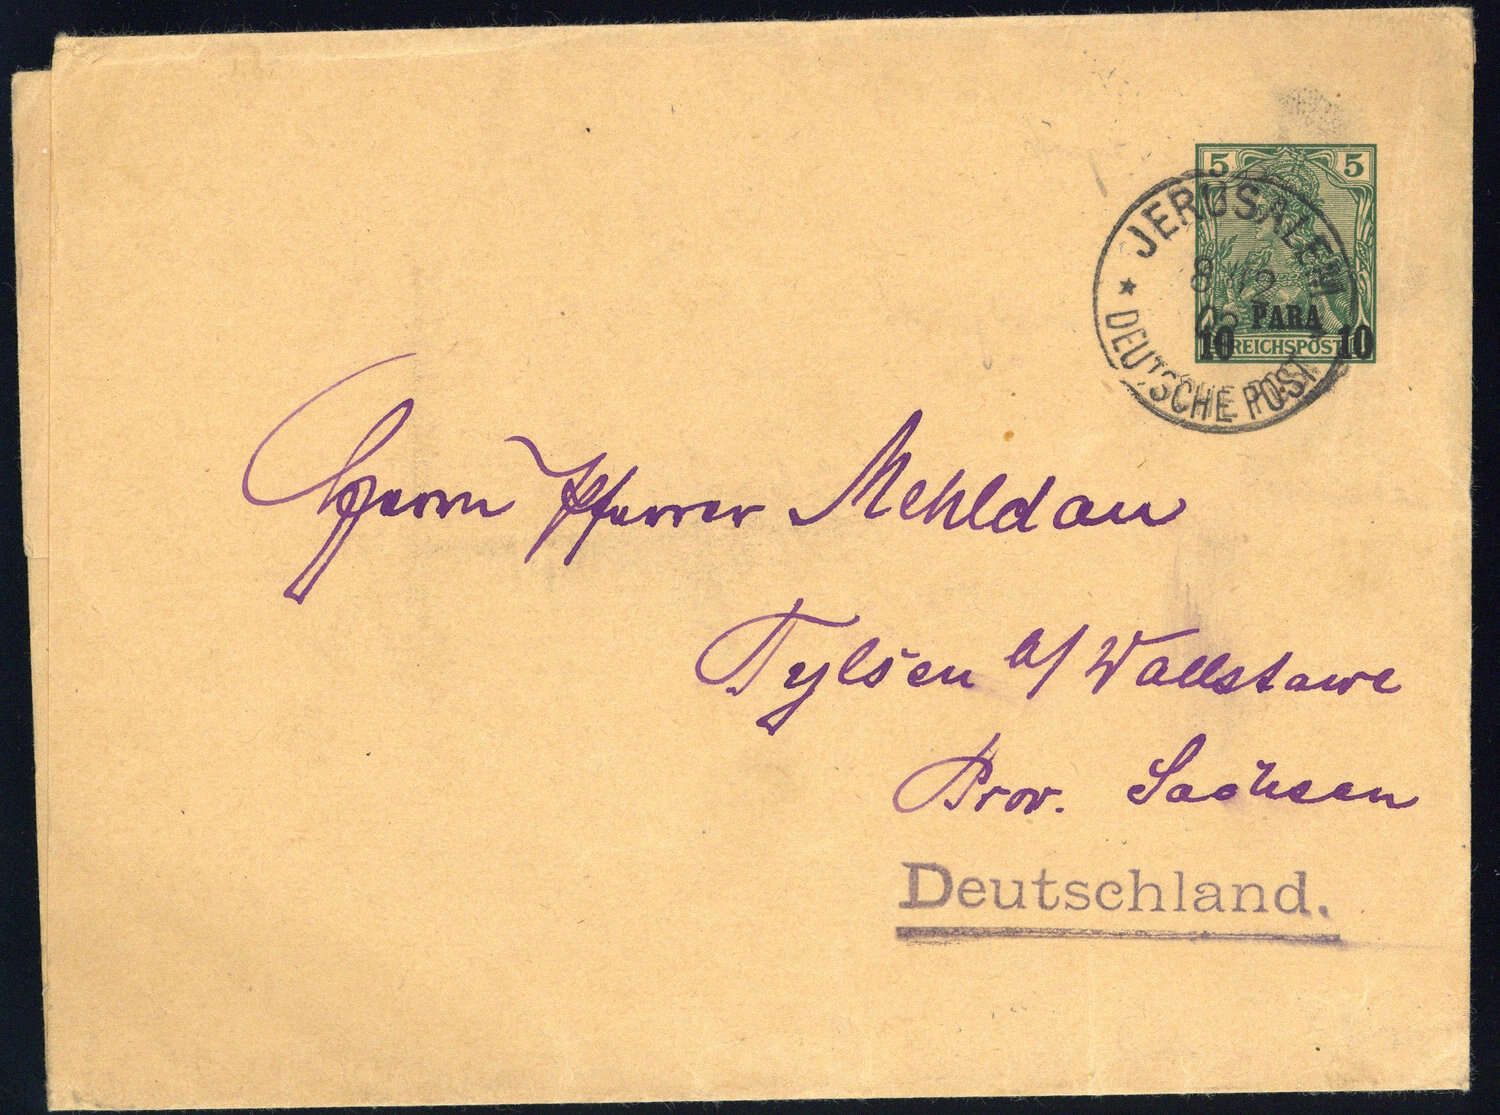 5 5
JERUSALEM
8 12
PARA
10 REICHSPOST 10
* DEUTSCHE POST
Herrn Pfarrer Mehldau
Tylsen b/ Wallstawe
Prov. Sachsen
Deutschland.